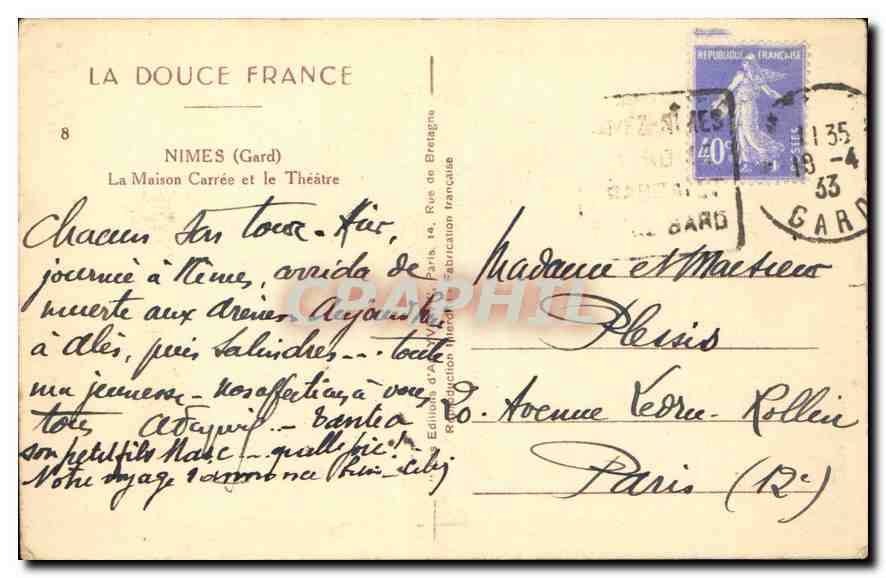 LA DOUCE FRANCE
8
NIMES (Gard)
La Maison Carrée et le Théâtre
Chacun son tour - Hier,
journée à Nîmes, corrida de
muerte aux arènes. Aujourd'hui
à Alès, puis Salindres --- toute
ma jeunesse - Nos affections à vous
tous
son petit fils Marc - quelle joie! -
Notre voyage
Paris, 14, Rue de Bretagne
Reproduction Interdite Fabrication française
REPUBLIQUE FRANÇAISE
40c
POSTES
GARD
11 35
19 -4
33
GARD
Madame et Monsieur
Plessis
Avenue Ledru-Rollin
Paris (12e)
CPAPHIL